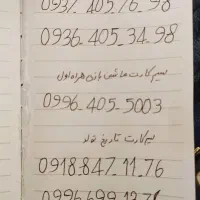 0937_405_76_98
0936_405_34_98
سیم کارت ماشین بازی همراه اول
0996_405_5003
سیم کارت تاریخ تولد
0918_847_11_76